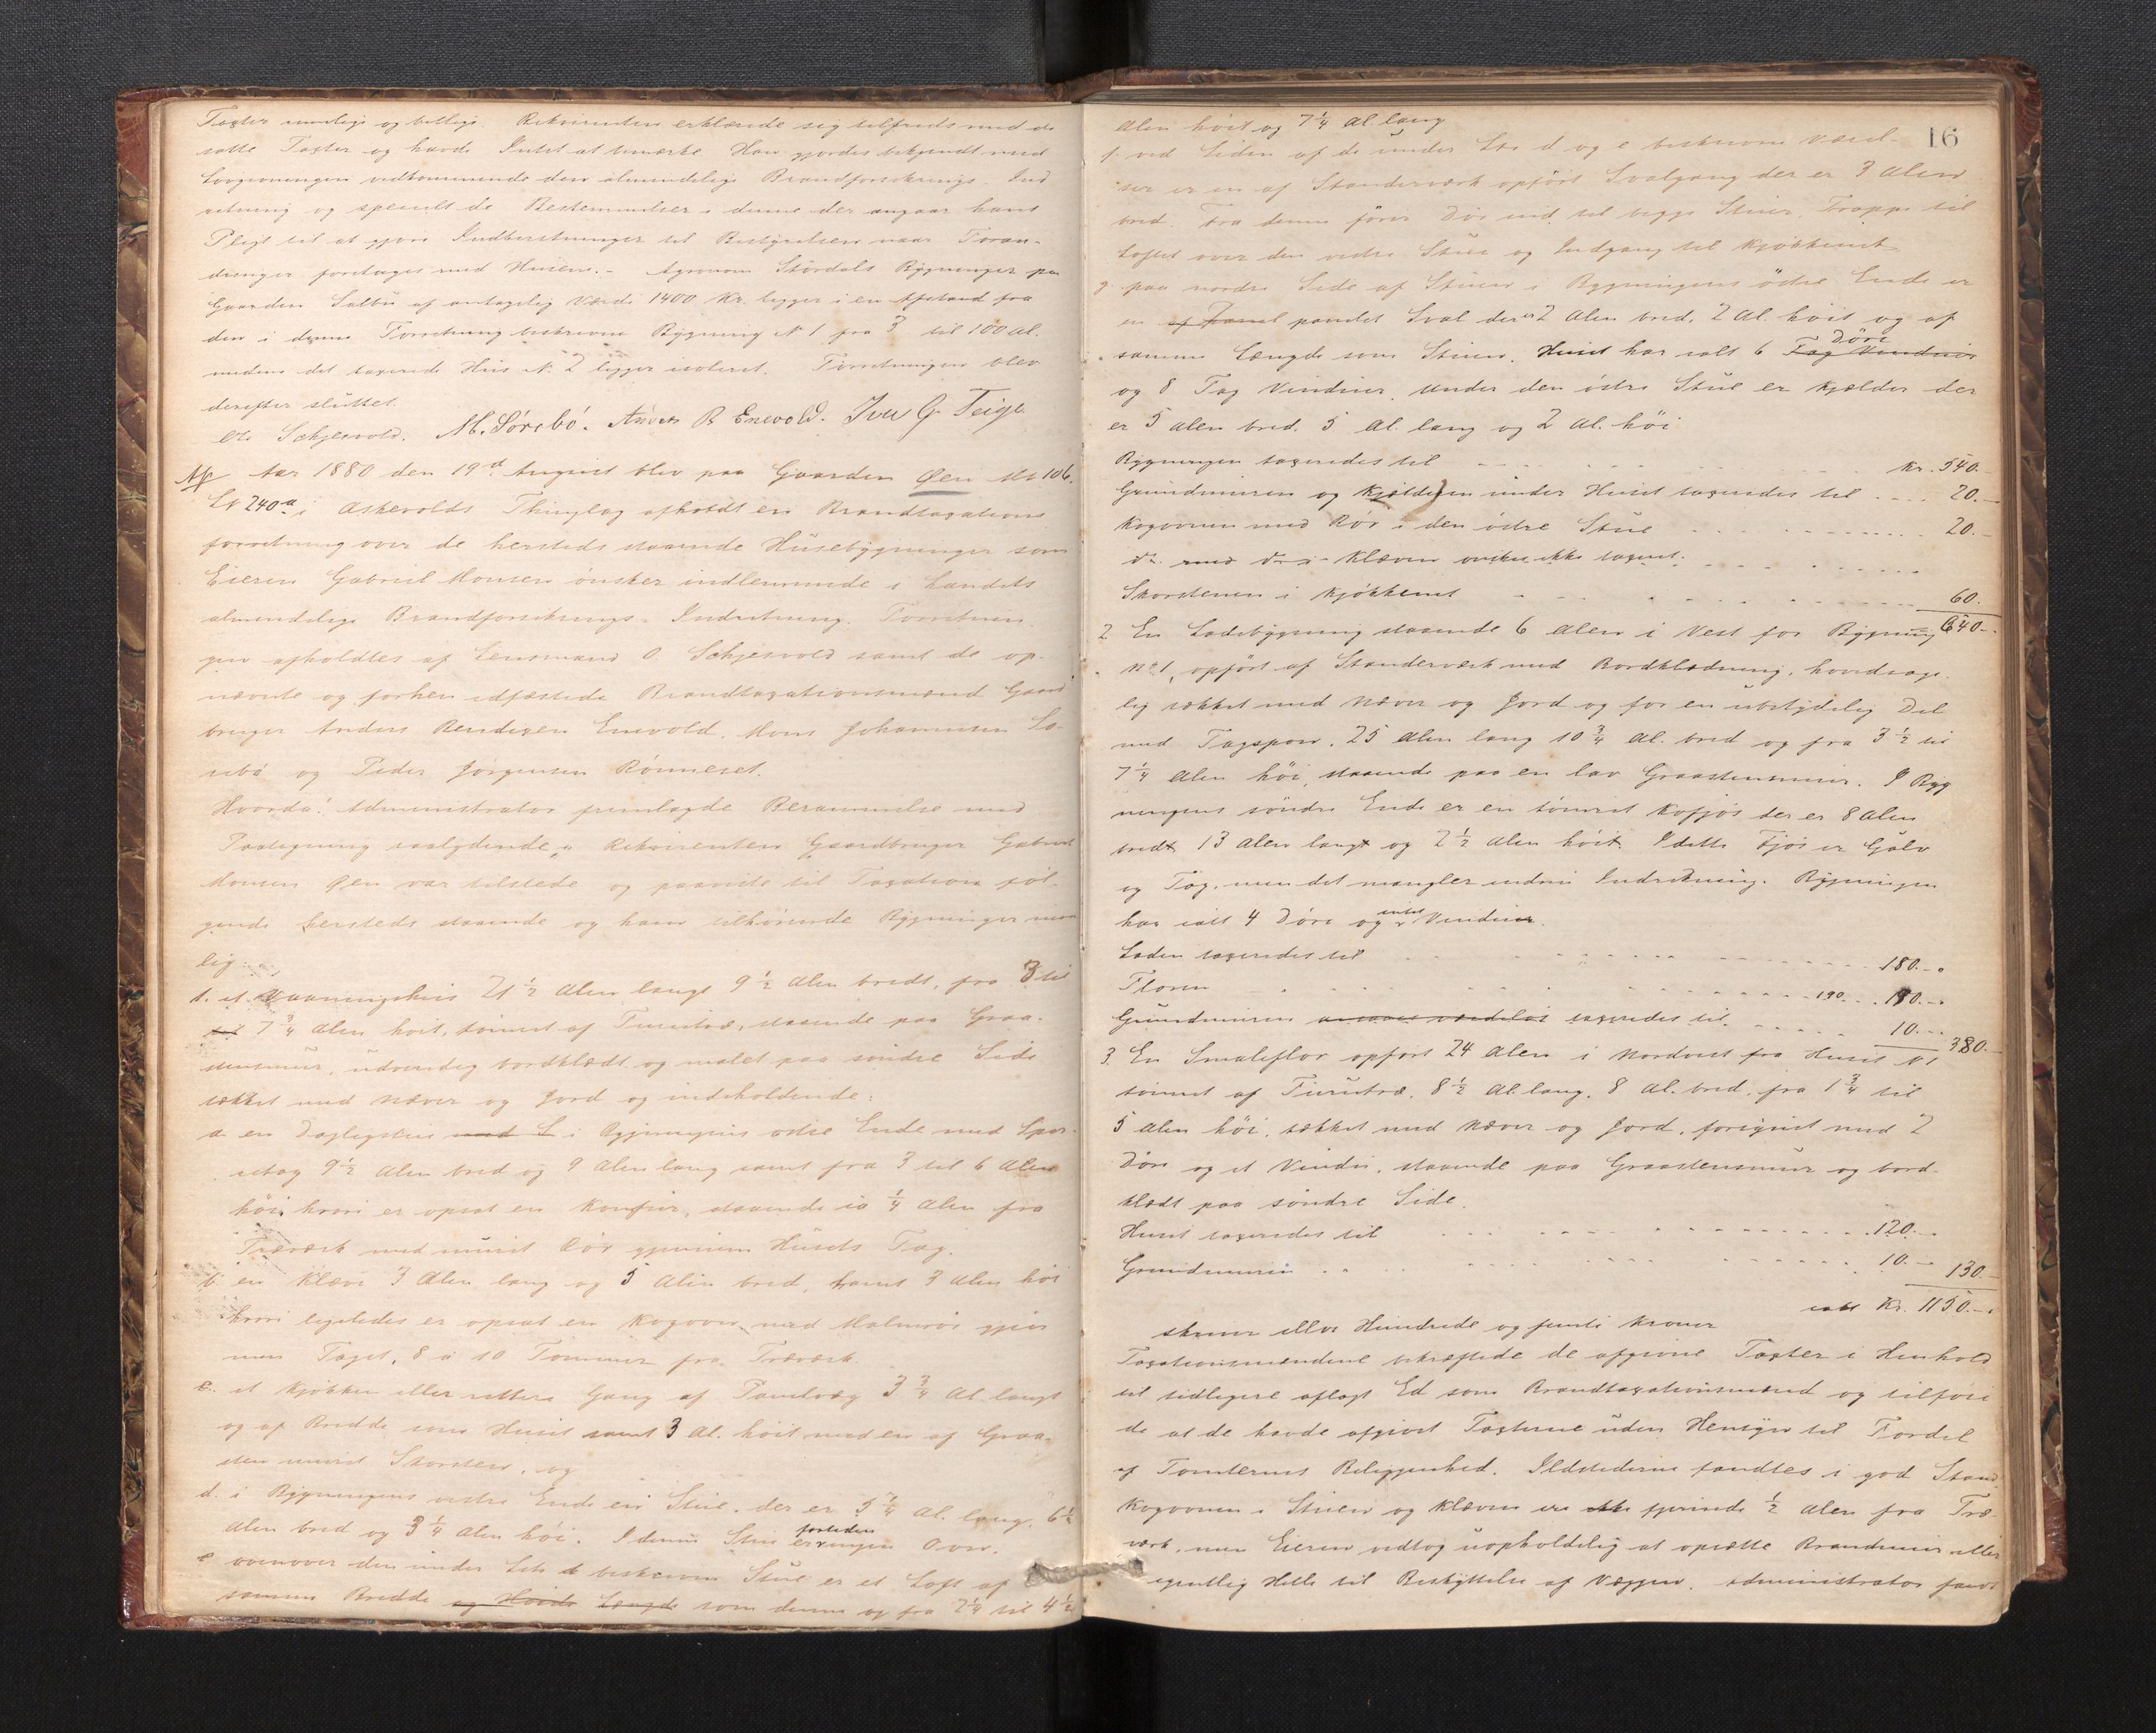 Taxter rimelige og billige. Rekvirenten erklærede sig tilfreds med de
satte Taxter og havde Intet at bemærke. Han gjordes bekjendt med
Lovgivningen vedkommende den almindelige Brandforsikrings-Ind
retning og specielt de Bestemmelser i denne der angaar hans
Pligt til at gjøre Indberetninger til Bestyrelsen naar Foran-
dringer foretages med Husene. - Agronom Stördals Bygninger paa
Gaarden Salbu af antagelig Værdi 1400 Kr. ligger i en Afstand fra
den i denne Forretning beskrevne Bygning N 1 fra 3 til 100 al.
medens det taxerede Hus N. 2 ligger isoleret. Forretningen blev
derefter sluttet.
Ole Schjesvold. M. Sörebö. Anders B Enevold. Iver G. Teige
Aar 1880 den 19de August blev paa Gaarden Øen Mt 106.
L 240a i Askevolds Thinglag afholdt en Brandtaxations
forretning over de hersteds staaende Husebygninger som
Eieren Gabriel Monsen ønsker indlemmede i Landets
almindelige Brandforsikrings-Indretning. Forretnin
gen afholdtes af Lensmand O. Schjesvold samt de op-
nævnte og forhen edfæstede Brandtaxationsmænd Gaard
bruger Anders Bendixen Enevold, Mons Johannesen Sö-
rebö og Peder Jörgensen Rönneset.
Hvorda: Administrator fremlagde Berammelse med
Paategning saalydende. Rekvirenten Gaardbruger Gabriel
Monsen Øen var tilstede og paaviste til Taxation föl-
gende hersteds staaende og ham tilhørende Bygninger nem
lig:
1. et Vaaningshus 21 1/2 Alen langt 9 1/2 Alen bredt, fra 3 til
7 3/4 Alen höit, tömret af Furutræ, staaende paa Graa-
stensmur, udvendig bordklædt og malet paa söndre Side
tækket med Næver og Jord og indeholdende:
a en Dagligstue med L i Bygningens östre Ende med Spar-
retag 9 1/2 Alen bred og 9 Alen lang samt fra 3 til 6 Alen
höi, hvori er opsat en Komfur, staaende ca 1/4 Alen fra
Træværk med muret Rör gjennem Husets Tag.
b. en Klæve 3 Alen lang og 5 Alen bred, samt 3 Alen höi
hvori ligeledes er opsat en Kogovn med Malmrör gjen
nem Taget, 8 a 10 Tommer fra Træværk
c. et Kjökken eller rettere Gang af Panelvæg 3 3/4 Al. langt
og af Bredde som Huset samt 3 Al. höit med en af Graa-
sten muret Skorsten, og
d. i Bygningens vestre Ende en Stue, der er 5 1/4 Al. lang, 6 1/2
Alen bred og 3 1/4 Alen höi. I denne Stue er fortiden ingen Ovn.
e ovenover den under Litr d beskrevne Stue er et Loft af
samme Bredde og Höide Længde som denne og fra 2 1/4 til 4 1/2
16
Alen höit og 7 1/4 Al. lang
f. ved Siden af de under Litr d og e beskrevne Værel-
ser er en af Standerværk opfört Svalgang der er 3 Alen
bred. Fra denne förer Dör ind til begge Stuer, Trappe til
Loftet over den vestre Stue og Indgang til Kjökkenet
g. paa nordre Side af Stuen i Bygningens östre Ende er
en af Panel panelet Sval der er 2 Alen bred. 2 Al. höit og af
samme Længde som Stuen. Huset har ialt 6 Fag Vinduer Döre
og 8 Fag Vinduer. Under den östre Stue er Kjælder der
er 5 Alen bred. 5 Al. lang og 2 Al. höi.
Bygningen taxeredes til Kr. 540.-
Grundmuren og Kjælderen under Huset taxeredes til 20.-
Kogovnen med Rör i den östre Stue 20.-
do. med do i Klæven önskes ikke taxeret.
Skorstenen i Kjökkenet 60.-
640.-
2 En Ladebygning staaende 6 Alen i Vest for Bygning
No 1, opfört af Standerværk med Bordklædning, hovedsage-
lig tækket med Næver og Jord og for en ubetydelig Del
med Tagspon, 25 Alen lang 10 3/4 Al. bred og fra 3 1/2 til
7 1/4 Alen höi, staaende paa en lav Graastensmur. I Byg
ningens söndre Ende er en tömret Kofjös der er 8 Alen
bredt 13 Alen langt og 2 1/2 Alen höit. I dette Fjös er Gulv
og Tag, men det mangler endnu Indredning. Bygningen
har ialt 4 Döre og intet Vinduer.
Laden taxeredes til 180.-
Floren 190. 190.-
Grundmuren ansaaes værdelös taxeredes til 10.-
380.-
3. En Smaleflor opfört 24 Alen i Nordvest fra Huset N 1
tömret af Furutræ. 8 1/2 Al. lang. 8 Al. bred, fra 1 3/4 til
5 Alen höi, tækket med Næver og Jord, forsynet med 2
Döre og et Vindu, staaende paa Graastensmur og bord-
klædt paa söndre Side.
Huset taxeredes til 120.-
Grundmuren 10.- 130.-
ialt Kr. 1150.-
skriver ellve Hundrede og femti Kroner
Taxationsmændene bekræftede de afgivne Taxter i Henhold
til tidligere aflagt Ed som Brandtaxationsmænd og tilföie
de at de havde afgivet Taxterne uden Hensyn til Fordel
af Tomternes Beliggenhed. Ildstederne fandtes i god Stand
Kogovnen i Stuen og Klæven ere ikke fjernede 1/2 Alen fra Træ-
værk, men Eieren vedtog uopholdelig at opsætte Brandmur eller
egentlig Helle til Beskyttelse af Væggen. Administrator fandt